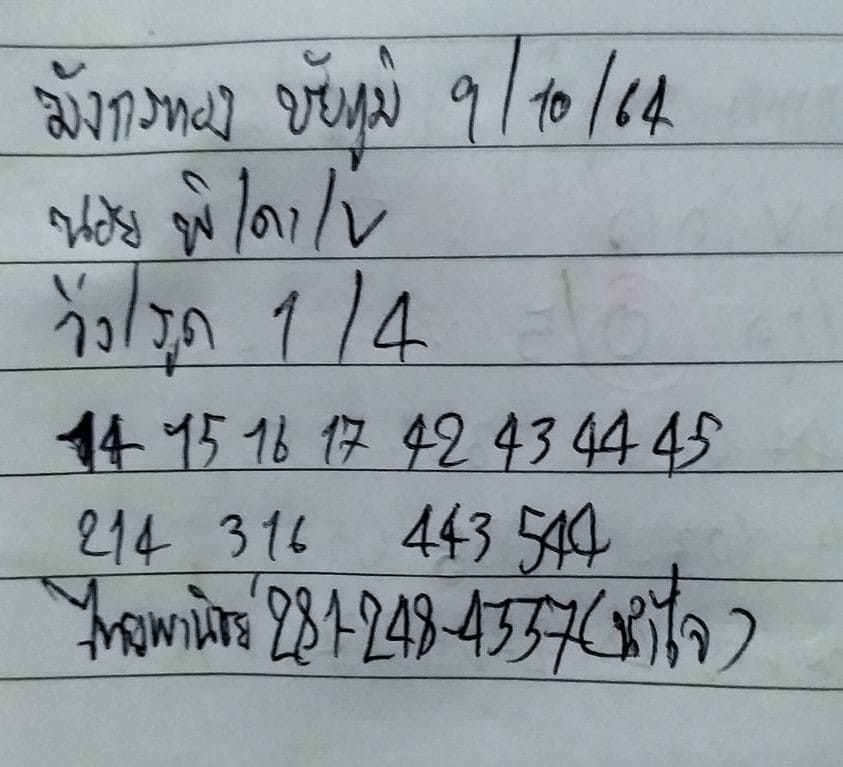 มังกรทอง ชัยภูมิ 9/10/64
หน่วย พี/ดา/v
วิ่ง/รูด 1/4
14 15 16 17 42 43 44 45
214 316 443 544
ไทยพานิชย์ 281-248-4557 (น้ำใจ)